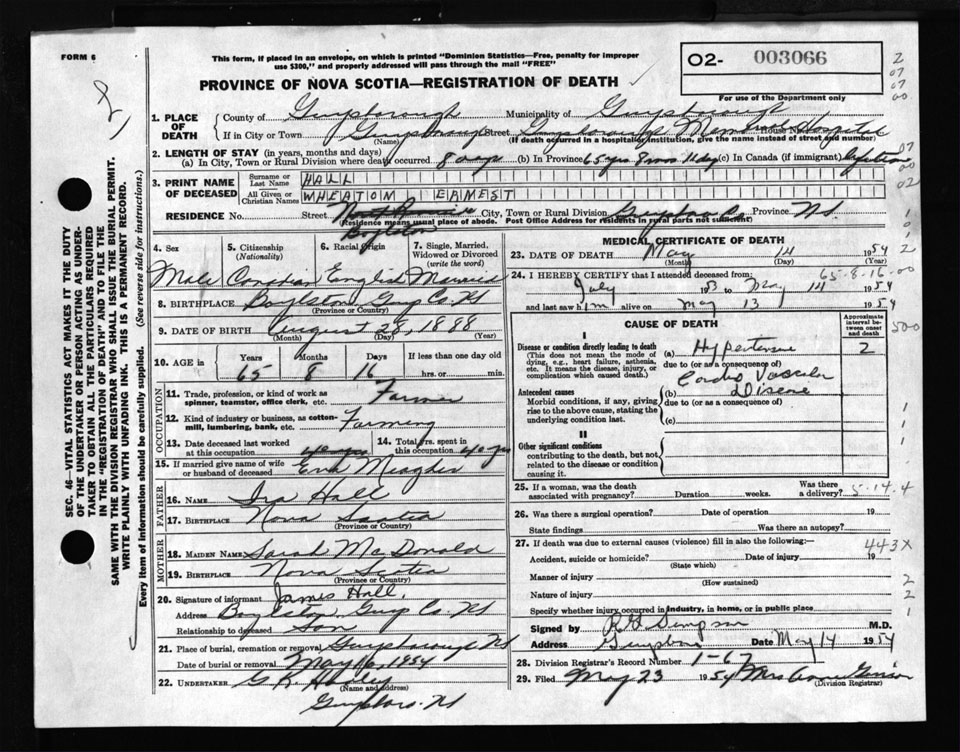 FORM 6
This form, if placed in an envelope, on which is printed "Dominion Statistics—Free, penalty for improper
use $300," and properly addressed will pass through the mail "FREE"
O2- 003066
For use of the Department only
PROVINCE OF NOVA SCOTIA—REGISTRATION OF DEATH
SEC. 46—VITAL STATISTICS ACT MAKES IT THE DUTY
OF THE UNDERTAKER OR PERSON ACTING AS UNDER-
TAKER TO OBTAIN ALL THE PARTICULARS REQUIRED
IN THE "REGISTRATION OF DEATH" AND TO FILE THE
SAME WITH THE DIVISION REGISTRAR WHO SHALL ISSUE THE BURIAL PERMIT.
WRITE PLAINLY WITH UNFADING INK. THIS IS A PERMANENT RECORD.
Every item of information should be carefully supplied. (See reverse side for instructions.)
1. PLACE OF DEATH
County of Guysborough Municipality of Guysborough
If in City or Town Guysborough Street Guysborough Memorial Hospital House No.
(Name) (If death occurred in a hospital or institution, give the name instead of street and number)
2. LENGTH OF STAY (in years, months and days)
(a) In City, Town or Rural Division where death occurred 8 days (b) In Province 65 yrs 8 mos 11 day (c) In Canada (if immigrant) lifetime
3. PRINT NAME OF DECEASED
Surname or Last Name HALL
All Given or Christian Names WHEATON, EARNEST
RESIDENCE No. Street City, Town or Rural Division Guysboro Co Province N.S.
(Residence means usual place of abode. Post Office Address for residents in rural parts not sufficient.)
Boylston
4. Sex 5. Citizenship (Nationality) 6. Racial Origin 7. Single, Married, Widowed or Divorced (write the word)
Male Canadian English Married
8. BIRTHPLACE Boylston Guys Co. N.S
(Province or Country)
9. DATE OF BIRTH August 28, 1888
(Month) (Day) (Year)
10. AGE in Years Months Days If less than one day old
65 8 16 hrs. or min.
OCCUPATION
11. Trade, profession, or kind of work as spinner, teamster, office clerk, etc. Farmer
12. Kind of industry or business, as cotton-mill, lumbering, bank, etc. Farming
13. Date deceased last worked at this occupation
14. Total yrs. spent in this occupation 40 yrs
15. If married give name of wife or husband of deceased Eva Meagher
FATHER
16. NAME Ira Hall
17. BIRTHPLACE Nova Scotia
(Province or Country)
MOTHER
18. MAIDEN NAME Sarah McDonald
19. BIRTHPLACE Nova Scotia
(Province or Country)
20. Signature of informant James Hall,
Address Boylston, Guys Co. NS
Relationship to deceased Son
21. Place of burial, cremation or removal Guysborough NS
Date of burial or removal May 16, 1954
22. UNDERTAKER G.K. Hadley
(Name and address)
Guysboro. NS
MEDICAL CERTIFICATE OF DEATH
23. DATE OF DEATH May 14 1954
(Month) (Day) (Year)
65-8-16-00
24. I HEREBY CERTIFY that I attended deceased from:
July 1953 to May 14 1954
and last saw him alive on May 13 1954
CAUSE OF DEATH
Approximate interval between onset and death
I
Disease or condition directly leading to death (a) Hypertensive 2
(This does not mean the mode of dying, e.g., heart failure, asthenia, etc. It means the disease, injury, or complication which caused death.)
due to (or as a consequence of)
Cardio Vascular
Antecedent causes (b) Disease
Morbid conditions, if any, giving rise to the above cause, stating the underlying condition last.
due to (or as a consequence of)
(c)
II
Other significant conditions
contributing to the death, but not related to the disease or condition causing it.
25. If a woman, was the death associated with pregnancy? Duration weeks. Was there a delivery? 5-14-4
26. Was there a surgical operation? Date of operation 19
State findings Was there an autopsy?
27. If death was due to external causes (violence) fill in also the following:
443X
Accident, suicide or homicide? Date of injury 19
(State which)
Manner of injury
(How sustained)
Nature of injury
Specify whether injury occurred in industry, in home, or in public place
Signed by M.D.
Address Guysboro Date May 14 1954
28. Division Registrar's Record Number 1-67
29. Filed May 23 1954 Mrs
(Division Registrar)